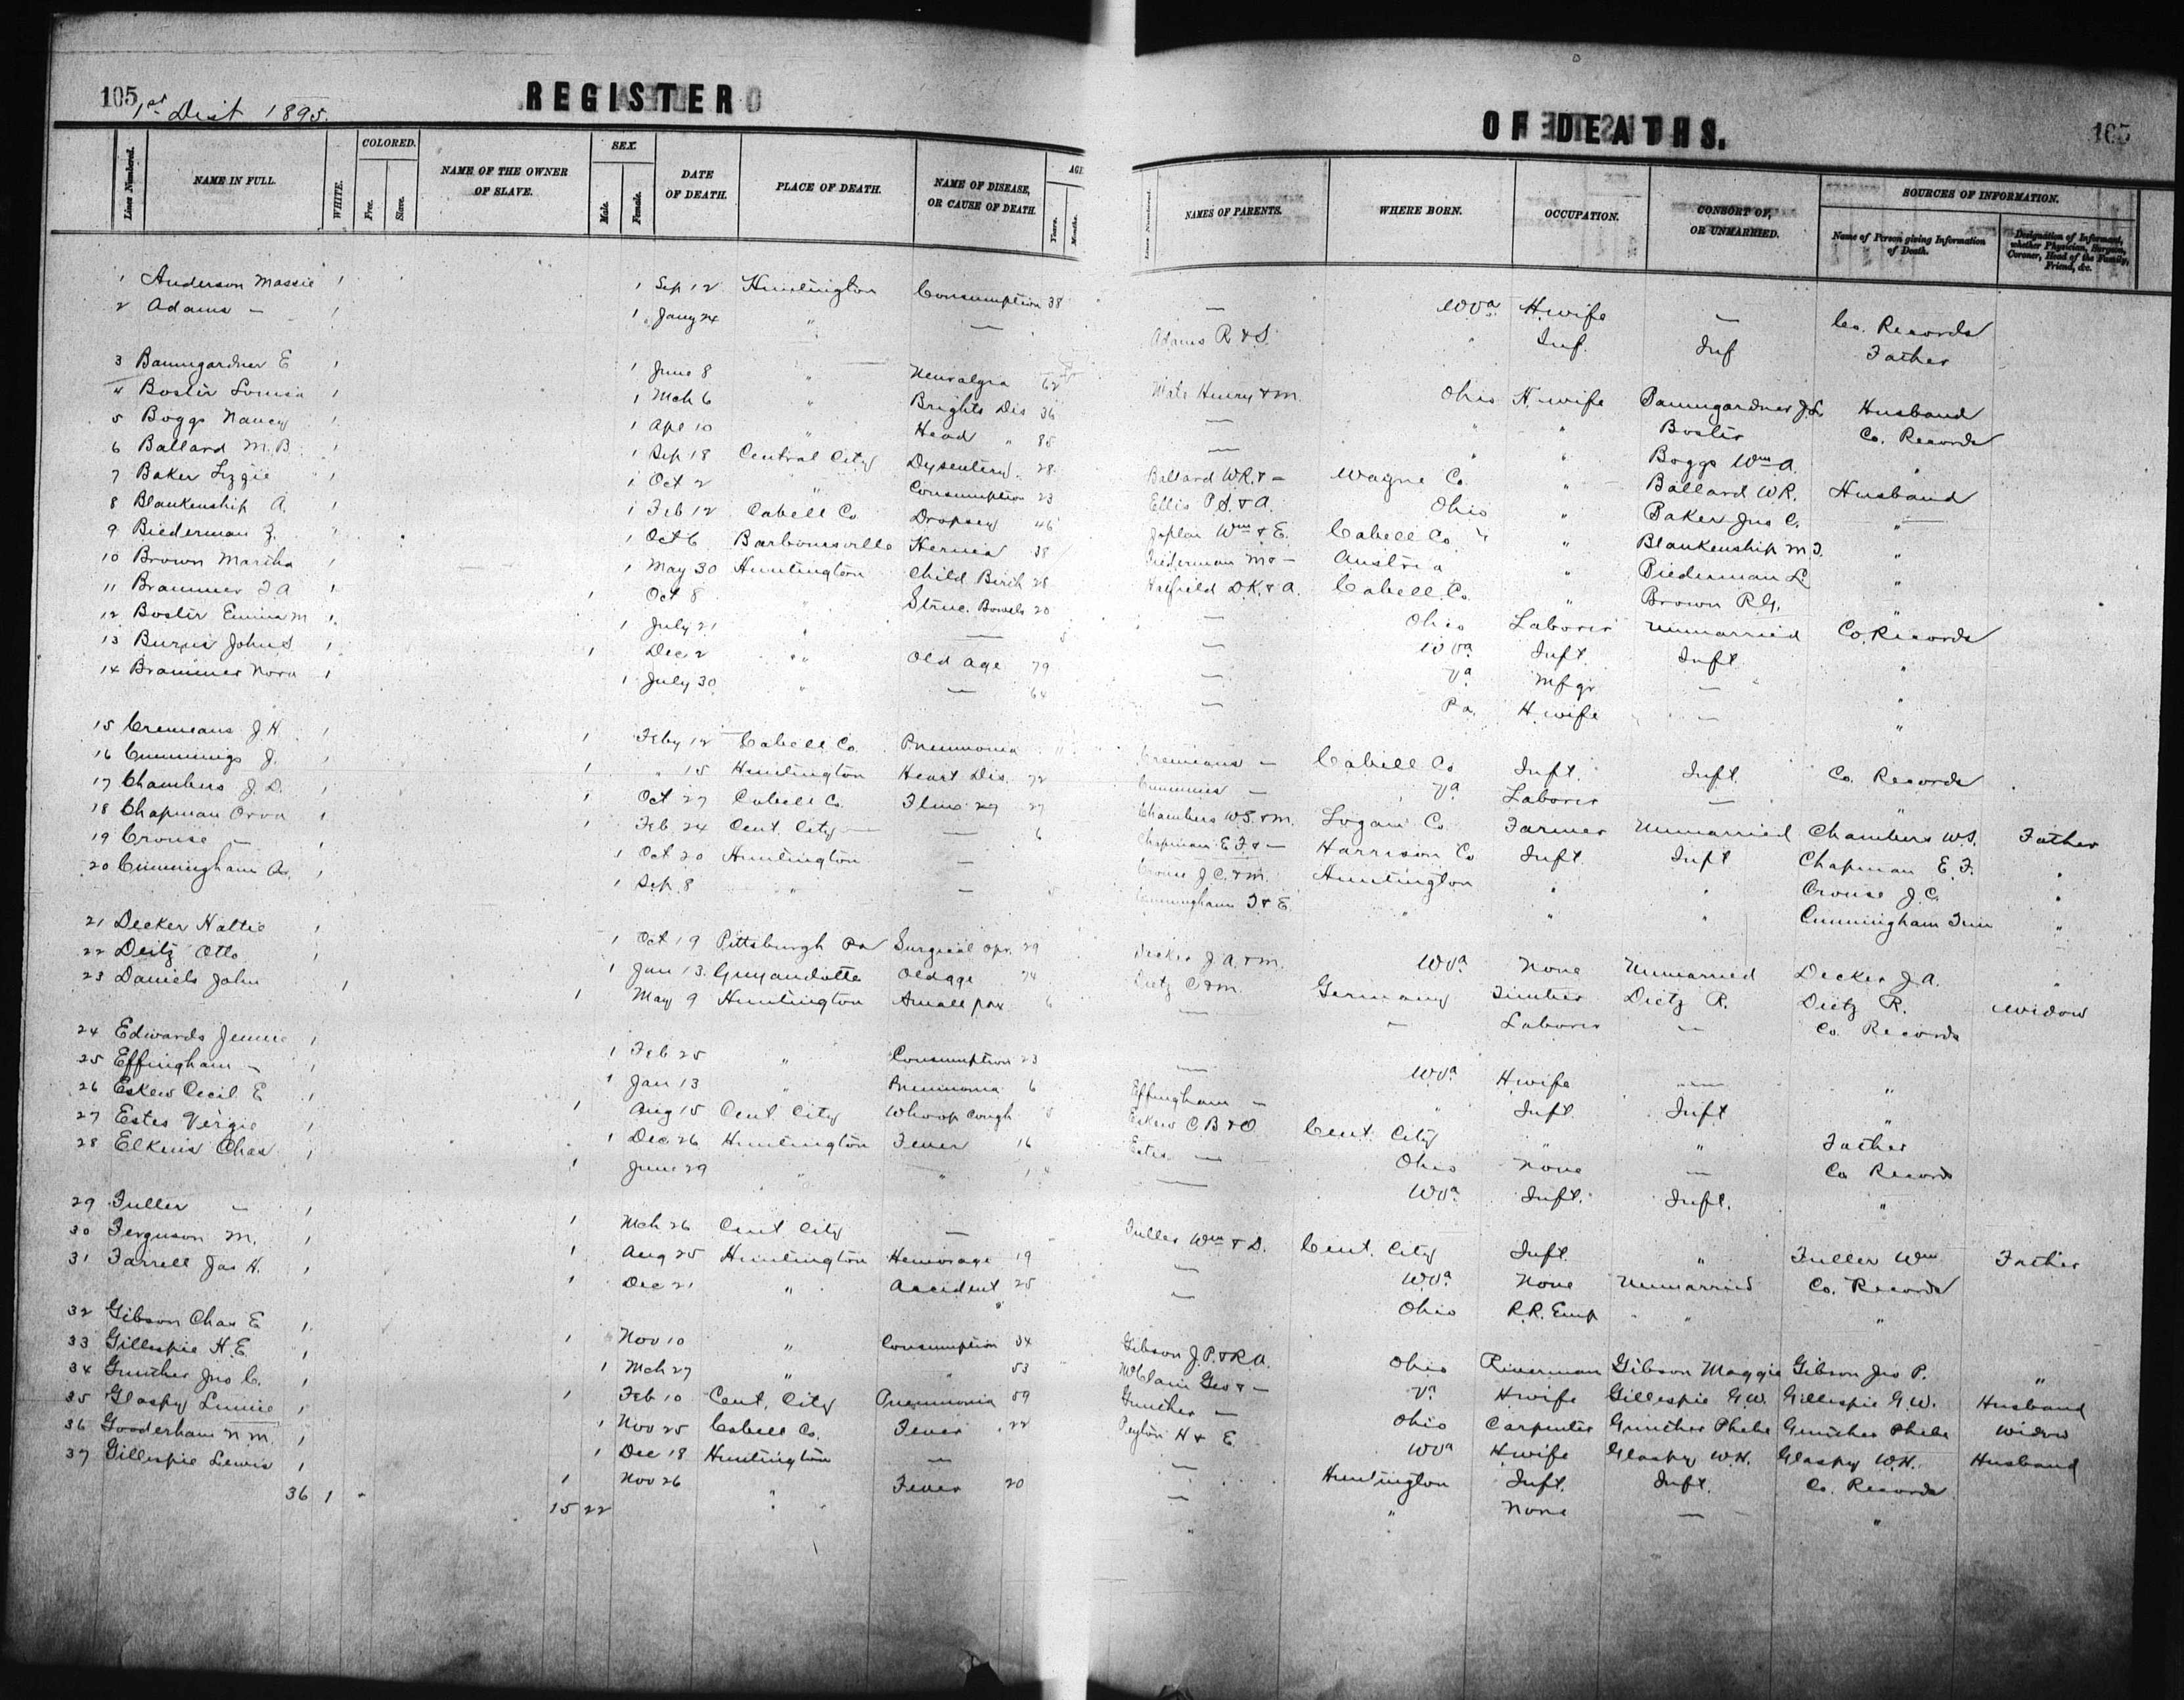 105
1st Dist 1895.
REGISTER
OF DEATHS.
105
Lines Numbered.
NAME IN FULL.
WHITE.
COLORED.
Free.
Slave.
NAME OF THE OWNER
OF SLAVE.
SEX.
Male.
Female.
DATE
OF DEATH.
PLACE OF DEATH.
NAME OF DISEASE,
OR CAUSE OF DEATH.
AGE
Years.
Months.
Lines Numbered.
NAMES OF PARENTS.
WHERE BORN.
OCCUPATION.
CONSORT OF,
OR UNMARRIED.
SOURCES OF INFORMATION.
Name of Person giving Information
of Death.
Designation of Informant,
whether Physician, Surgeon,
Coroner, Head of the Family,
Friend, &c.
1 Anderson Massie 1 1 Sep 12 Huntington Consumption 38 — W Va H.wife — Co. Records
2 Adams — 1 1 Jany 24 " — Adams R & S. " Inf. Inf Father
3 Baumgardner E 1 1 June 8 " Neuralgia 62 Henry & M. Ohio H.wife Baumgardner J.L Husband
4 Boster Louisa 1 1 Mch 6 " Brights Dis 36 — " " Boster Co. Records
5 Boggs Nancy 1 1 Apl 10 " Head " 85 — " " Boggs Wm A. "
6 Ballard M.B. 1 1 Sep 18 Central City Dysentery 28 Ballard W.R. & — Wayne Co. " Ballard W.R. Husband
7 Baker Lizzie 1 1 Oct 2 " Consumption 23 Ellis P.S. & A. Ohio " Baker Jno C. "
8 Blankenship A. 1 1 Feb 12 Cabell Co Dropsy 46 Wm & E. Cabell Co. " Blankenship M.T. "
9 Biederman Z. " 1 Oct 6 Barboursville Hernia 38 Biederman M & — Austria " Biederman L. "
10 Brown Martha 1 1 May 30 Huntington Child Birth 28 D.K. & A. Cabell Co. " Brown R.G. "
11 Brammer T A 1 1 Oct 8 " Bowels 20 — Ohio Laborer Unmarried Co. Records
12 Boster Emma M 1 1 July 21 " — 5 — W Va Inft. Inft. "
13 Burns John S 1 1 Dec 2 " Old Age 79 — Va Mfgr — "
14 Brammer Nora 1 1 July 30 " — 64 — Pa. H.wife — "
15 Cremeans J.H. 1 1 Feby 12 Cabell Co. Pneumonia Cremeans — Cabell Co Inft. Inft. Co. Records
16 Cummings J. 1 1 " 15 Huntington Heart Dis. 72 — Va Laborer — "
17 Chambers J.D. 1 1 Oct 27 Cabell Co. 27 Chambers W.S. & M. Logan Co Farmer Unmarried Chambers W.S. Father
18 Chapman Orva 1 1 Feb 24 Cent. City — 6 Chapman E.F. & — Harrison Co Inft. Inft Chapman E.F. "
19 Crouse — 1 1 Oct 20 Huntington — Crouse J.C. & M. Huntington " " Crouse J.C. "
20 Cunningham 1 1 Sep 8 " — Cunningham T & E. " " " Cunningham "
21 Decker Hattie 1 1 Oct 19 Pittsburgh Pa Surgical opr. 29 Decker J.A. & M. W Va None Unmarried Decker J.A. "
22 Deitz Otto 1 1 Jan 13. Guyandotte Old age 74 Dietz C & M. Germany Timber Dietz R. Dietz R. Widow
23 Daniels John 1 1 May 9 Huntington Small pox 6 — — Laborer — Co. Records
24 Edwards Jennie 1 1 Feb 25 " Consumption 23 — W Va H wife — "
25 Effingham — 1 1 Jan 13 " Pneumonia 6 Effingham — " Inft. Inft "
26 Eskew Cecil E 1 1 Aug 15 Cent City Whoop Cough Eskew C.B & O. Cent. City " " Father
27 Estes Vergie 1 1 Dec 26 Huntington Fever 16 Estes — Ohio None — Co Records
28 Elkins Chas 1 1 June 29 " " — W Va. Inft. Inft. "
29 Fuller — 1 1 Mch 26 Cent City — Fuller Wm & D. Cent. City Inft. " Fuller Wm Father
30 Ferguson M. 1 1 Aug 25 Huntington Hemorage 19 — W Va. None Unmarried Co. Records
31 Farrell Jas H. 1 1 Dec 21 " Accident 25 — Ohio R.R. Emp " "
32 Gibson Chas E 1. 1 Nov 10 " Consumption 34 Gibson J.P. & R.A. Ohio Riverman Gibson Maggie Gibson Jno P. "
33 Gillespie H.E. 1 1 Mch 27 " " 53 McClain Geo & — Va H wife Gillespie G.W. Gillespie G.W. Husband
34 Gunther Jno C. 1 1 Feb 10 Cent. City Pneumonia 59 Gunther — Ohio Carpenter Gunther Phebe Gunther Phebe Widow
35 Glaspy Linnie 1 1 Nov 25 Cabell Co. Fever 22 Peyton H & E. W Va H wife Glaspy W.H. Glaspy W.H. Husband
36 Gooderham N M. 1 1 Dec 18 Huntington — — Huntington Inft. Inft. Co. Records
37 Gillespie Lewis 1 1 Nov 26 " Fever 20 — " None — "
36 1 15 22